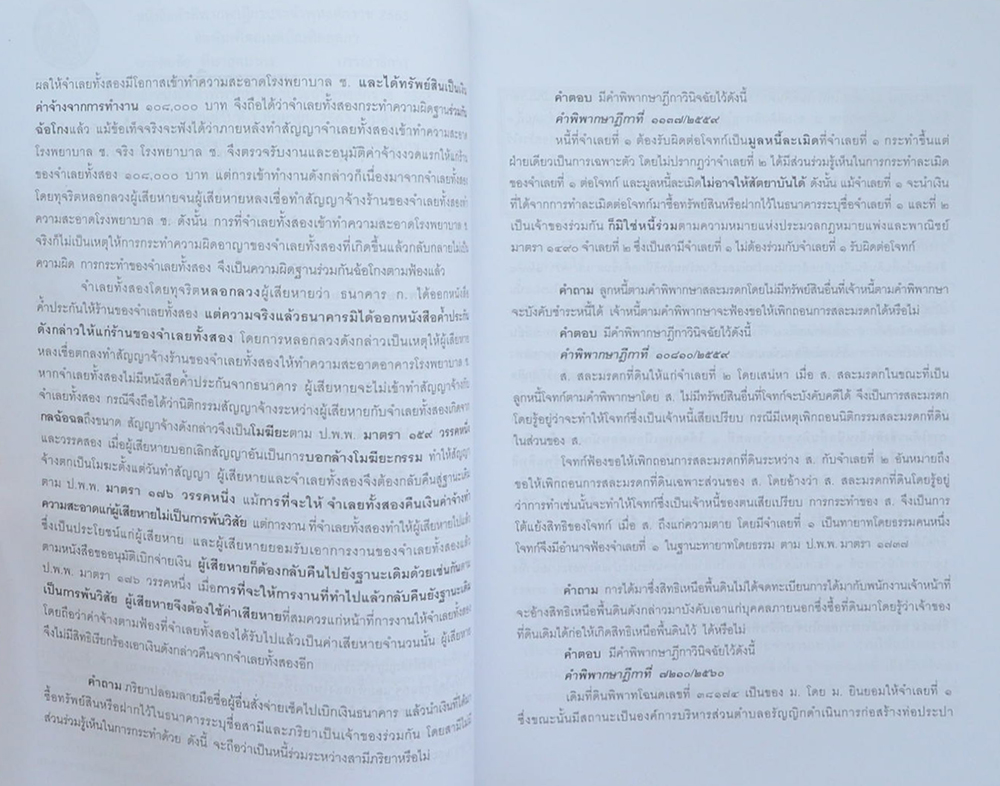 ผลให้จำเลยทั้งสองมีโอกาสเข้าทำความสะอาดโรงพยาบาล ซ. และได้ทรัพย์สินเป็นเงิน
ค่าจ้างจากการทำงาน ๑๐๘,๐๐๐ บาท จึงถือได้ว่าจำเลยทั้งสองกระทำความผิดฐานร่วมกัน
ฉ้อโกงแล้ว แม้ข้อเท็จจริงจะฟังได้ว่าภายหลังทำสัญญาจำเลยทั้งสองเข้าทำความสะอาด
โรงพยาบาล ซ. จริง โรงพยาบาล ซ. จึงตรวจรับงานและอนุมัติค่าจ้างงวดแรกให้แก่ร้าน
ของจำเลยทั้งสอง ๑๐๘,๐๐๐ บาท แต่การเข้าทำงานดังกล่าวก็เนื่องมาจากจำเลยทั้งสอง
โดยทุจริตหลอกลวงผู้เสียหายจนผู้เสียหายหลงเชื่อทำสัญญาจ้างร้านของจำเลยทั้งสองทำ
ความสะอาดโรงพยาบาล ซ. ดังนั้น การที่จำเลยทั้งสองเข้าทำความสะอาดโรงพยาบาล ซ.
จริงก็ไม่เป็นเหตุให้การกระทำความผิดอาญาของจำเลยทั้งสองที่เกิดขึ้นแล้วกลับกลายไม่เป็น
ความผิด การกระทำของจำเลยทั้งสอง จึงเป็นความผิดฐานร่วมกันฉ้อโกงตามฟ้องแล้ว
จำเลยทั้งสองโดยทุจริตหลอกลวงผู้เสียหายว่า ธนาคาร ก. ได้ออกหนังสือ
ค้ำประกันให้ร้านของจำเลยทั้งสอง แต่ความจริงแล้วธนาคารมิได้ออกหนังสือค้ำประกัน
ดังกล่าวให้แก่ร้านของจำเลยทั้งสอง โดยการหลอกลวงดังกล่าวเป็นเหตุให้ผู้เสียหาย
หลงเชื่อตกลงทำสัญญาจ้างร้านของจำเลยทั้งสองให้ทำความสะอาดอาคารโรงพยาบาล ซ.
หากจำเลยทั้งสองไม่มีหนังสือค้ำประกันจากธนาคาร ผู้เสียหายจะไม่เข้าทำสัญญาจ้างกับ
จำเลยทั้งสอง กรณีจึงถือได้ว่านิติกรรมสัญญาจ้างระหว่างผู้เสียหายกับจำเลยทั้งสองเกิดจาก
กลฉ้อฉลถึงขนาด สัญญาจ้างดังกล่าวจึงเป็นโมฆียะตาม ป.พ.พ. มาตรา ๑๕๙ วรรคหนึ่ง
และวรรคสอง เมื่อผู้เสียหายบอกเลิกสัญญาอันเป็นการบอกล้างโมฆียะกรรม ทำให้สัญญา
จ้างตกเป็นโมฆะตั้งแต่วันทำสัญญา ผู้เสียหายและจำเลยทั้งสองจึงต้องกลับคืนสู่ฐานะเดิม
ตาม ป.พ.พ. มาตรา ๑๗๖ วรรคหนึ่ง แม้การที่จะให้ จำเลยทั้งสองคืนเงินค่าจ้างทำ
ความสะอาดแก่ผู้เสียหายไม่เป็นการพ้นวิสัย แต่การงาน ที่จำเลยทั้งสองทำให้ผู้เสียหายไปแล้ว
ซึ่งเป็นประโยชน์แก่ผู้เสียหาย และผู้เสียหายยอมรับเอาการงานของจำเลยทั้งสองแล้ว
ตามหนังสือขออนุมัติเบิกจ่ายเงิน ผู้เสียหายก็ต้องกลับคืนไปยังฐานะเดิมด้วยเช่นกันตาม
ป.พ.พ. มาตรา ๑๗๖ วรรคหนึ่ง เมื่อการที่จะให้การงานที่ทำไปแล้วกลับคืนยังฐานะเดิม
เป็นการพ้นวิสัย ผู้เสียหายจึงต้องใช้ค่าเสียหายที่สมควรแก่หน้าที่การงานให้จำเลยทั้งสอง
โดยถือว่าค่าจ้างตามฟ้องที่จำเลยทั้งสองได้รับไปแล้วเป็นค่าเสียหายจำนวนนั้น ผู้เสียหาย
จึงไม่มีสิทธิเรียกร้องเอาเงินดังกล่าวคืนจากจำเลยทั้งสองอีก
คำถาม ภริยาปลอมลายมือชื่อผู้อื่นสั่งจ่ายเช็คไปเบิกเงินธนาคาร แล้วนำเงินที่ได้มา
ซื้อทรัพย์สินหรือฝากไว้ในธนาคารระบุชื่อสามีและภริยาเป็นเจ้าของร่วมกัน โดยสามีไม่มี
ส่วนร่วมรู้เห็นในการกระทำด้วย ดังนี้ จะถือว่าเป็นหนี้ร่วมระหว่างสามีภริยาหรือไม่
คำตอบ มีคำพิพากษาฎีกาวินิจฉัยไว้ดังนี้
คำพิพากษาฎีกาที่ ๑๑๓๗/๒๕๕๙
หนี้ที่จำเลยที่ ๑ ต้องรับผิดต่อโจทก์เป็นมูลหนี้ละเมิดที่จำเลยที่ ๑ กระทำขึ้นแต่
ฝ่ายเดียวเป็นการเฉพาะตัว โดยไม่ปรากฏว่าจำเลยที่ ๒ ได้มีส่วนร่วมรู้เห็นในการกระทำละเมิด
ของจำเลยที่ ๑ ต่อโจทก์ และมูลหนี้ละเมิดไม่อาจให้สัตยาบันได้ ดังนั้น แม้จำเลยที่ ๑ จะนำเงิน
ที่ได้จากการทำละเมิดต่อโจทก์มาซื้อทรัพย์สินหรือฝากไว้ในธนาคารระบุชื่อจำเลยที่ ๑ และที่ ๒
เป็นเจ้าของร่วมกัน ก็มิใช่หนี้ร่วมตามความหมายแห่งประมวลกฎหมายแพ่งและพาณิชย์
มาตรา ๑๔๙๐ จำเลยที่ ๒ ซึ่งเป็นสามีจำเลยที่ ๑ ไม่ต้องร่วมกับจำเลยที่ ๑ รับผิดต่อโจทก์
คำถาม ลูกหนี้ตามคำพิพากษาสละมรดกโดยไม่มีทรัพย์สินอื่นที่เจ้าหนี้ตามคำพิพากษา
จะบังคับชำระหนี้ได้ เจ้าหนี้ตามคำพิพากษาจะฟ้องขอให้เพิกถอนการสละมรดกได้หรือไม่
คำตอบ มีคำพิพากษาฎีกาวินิจฉัยไว้ดังนี้
คำพิพากษาฎีกาที่ ๑๐๘๑๐/๒๕๕๙
ส. สละมรดกที่ดินให้แก่จำเลยที่ ๒ โดยเสน่หา เมื่อ ส. สละมรดกในขณะที่เป็น
ลูกหนี้โจทก์ตามคำพิพากษาโดย ส. ไม่มีทรัพย์สินอื่นที่โจทก์จะบังคับคดีได้ จึงเป็นการสละมรดก
โดยรู้อยู่ว่าจะทำให้โจทก์ซึ่งเป็นเจ้าหนี้เสียเปรียบ กรณีมีเหตุเพิกถอนนิติกรรมสละมรดกที่ดิน
ในส่วนของ ส.
โจทก์ฟ้องขอให้เพิกถอนการสละมรดกที่ดินระหว่าง ส. กับจำเลยที่ ๒ อันหมายถึง
ขอให้เพิกถอนการสละมรดกที่ดินเฉพาะส่วนของ ส. โดยอ้างว่า ส. สละมรดกที่ดินโดยรู้อยู่
ว่าการทำเช่นนั้นจะทำให้โจทก์ซึ่งเป็นเจ้าหนี้ของตนเสียเปรียบ การกระทำของ ส. จึงเป็นการ
โต้แย้งสิทธิของโจทก์ เมื่อ ส. ถึงแก่ความตาย โดยมีจำเลยที่ ๑ เป็นทายาทโดยธรรมคนหนึ่ง
โจทก์จึงมีอำนาจฟ้องจำเลยที่ ๑ ในฐานะทายาทโดยธรรม ตาม ป.พ.พ. มาตรา ๑๗๓๗
คำถาม การได้มาซึ่งสิทธิเหนือพื้นดินไม่ได้จดทะเบียนการได้มากับพนักงานเจ้าหน้าที่
จะอ้างสิทธิเหนือพื้นดินดังกล่าวมาบังคับเอาแก่บุคคลภายนอกซึ่งซื้อที่ดินมาโดยรู้ว่าเจ้าของ
ที่ดินเดิมได้ก่อให้เกิดสิทธิเหนือพื้นดินไว้ ได้หรือไม่
คำตอบ มีคำพิพากษาฎีกาวินิจฉัยไว้ดังนี้
คำพิพากษาฎีกาที่ ๗๒๑๐/๒๕๖๐
เดิมที่ดินพิพาทโฉนดเลขที่ ๓๘๑๗๔ เป็นของ ม. โดย ม. ยินยอมให้จำเลยที่ ๑
ซึ่งขณะนั้นมีสถานะเป็นองค์การบริหารส่วนตำบลอรัญญิกดำเนินการก่อสร้างท่อประปา